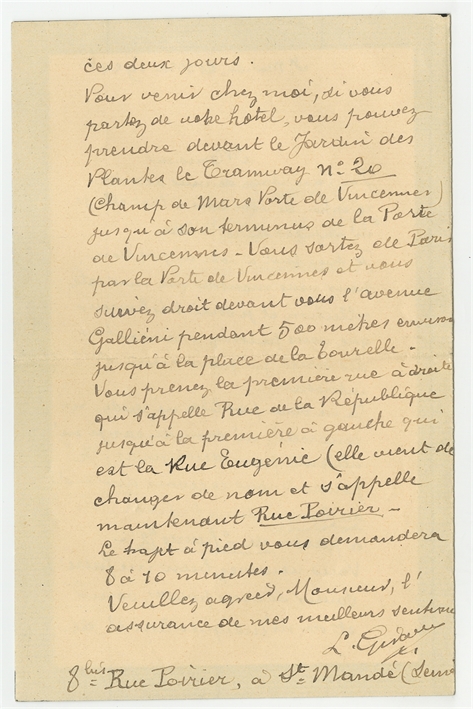 ces deux jours.
Pour venir chez moi, si vous
partez de votre hôtel, vous pouvez
prendre devant le Jardin des
Plantes le Tramway No 20
(Champ de Mars Porte de Vincennes)
jusqu'à son terminus de la Porte
de Vincennes - Vous sortez de Paris
par la Porte de Vincennes et vous
suivez droit devant vous l'avenue
Galliéni pendant 500 mètres environ
jusqu'à la place de la Tourelle -
Vous prenez la première rue à droite
qui s'appelle Rue de la République
jusqu'à la première à gauche qui
est la Rue Eugénie (elle vient de
changer de nom et s'appelle
maintenant Rue Poirier -
Le trajet à pied vous demandera
8 à 10 minutes.
Veuillez agréer, Monsieur, l'
assurance de mes meilleurs
L.
8 bis Rue Poirier, à St Mandé (Seine